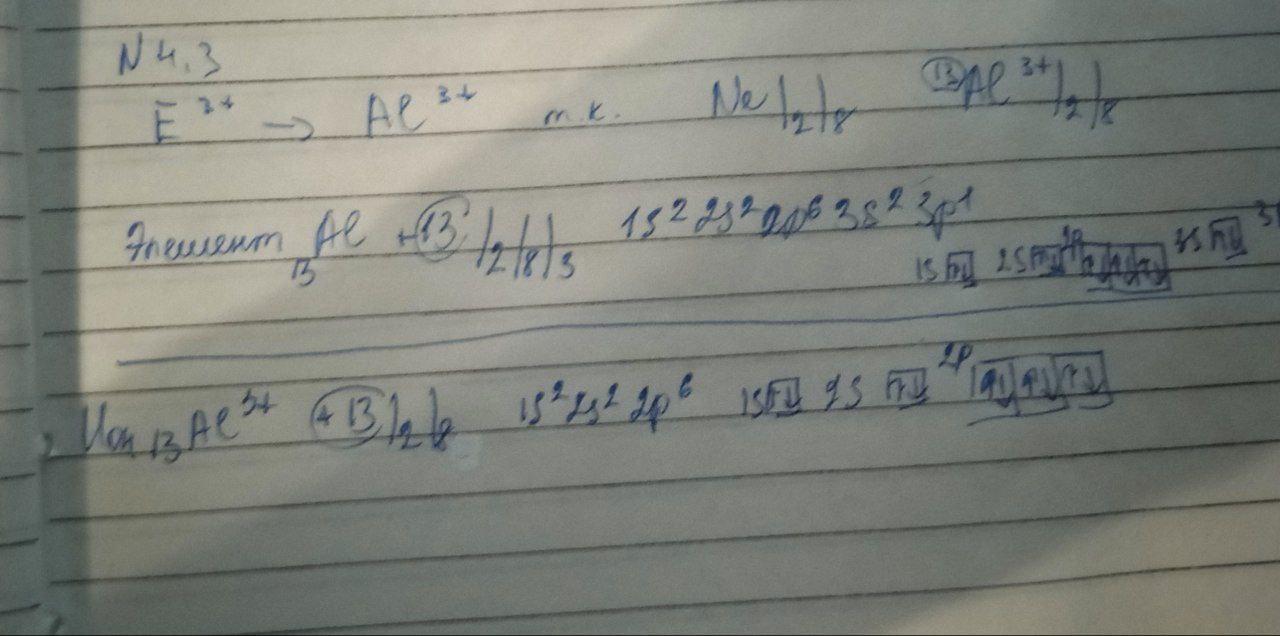 N 4.3
E³⁺ → Al³⁺ т.к. Ne )₂)₈ (13) Al³⁺ )₂)₈
Элемент ₁₃Al +13 )₂)₈)₃ 1s² 2s² 2p⁶ 3s² 3p¹
1s [↑↓] 2s [↑↓] 2p [↑↓][↑↓][↑↓] 3s [↑↓]
Ион ₁₃Al³⁺ +13 )₂)₈ 1s² 2s² 2p⁶ 1s [↑↓] 2s [↑↓] 2p [↑↓][↑↓][↑↓]